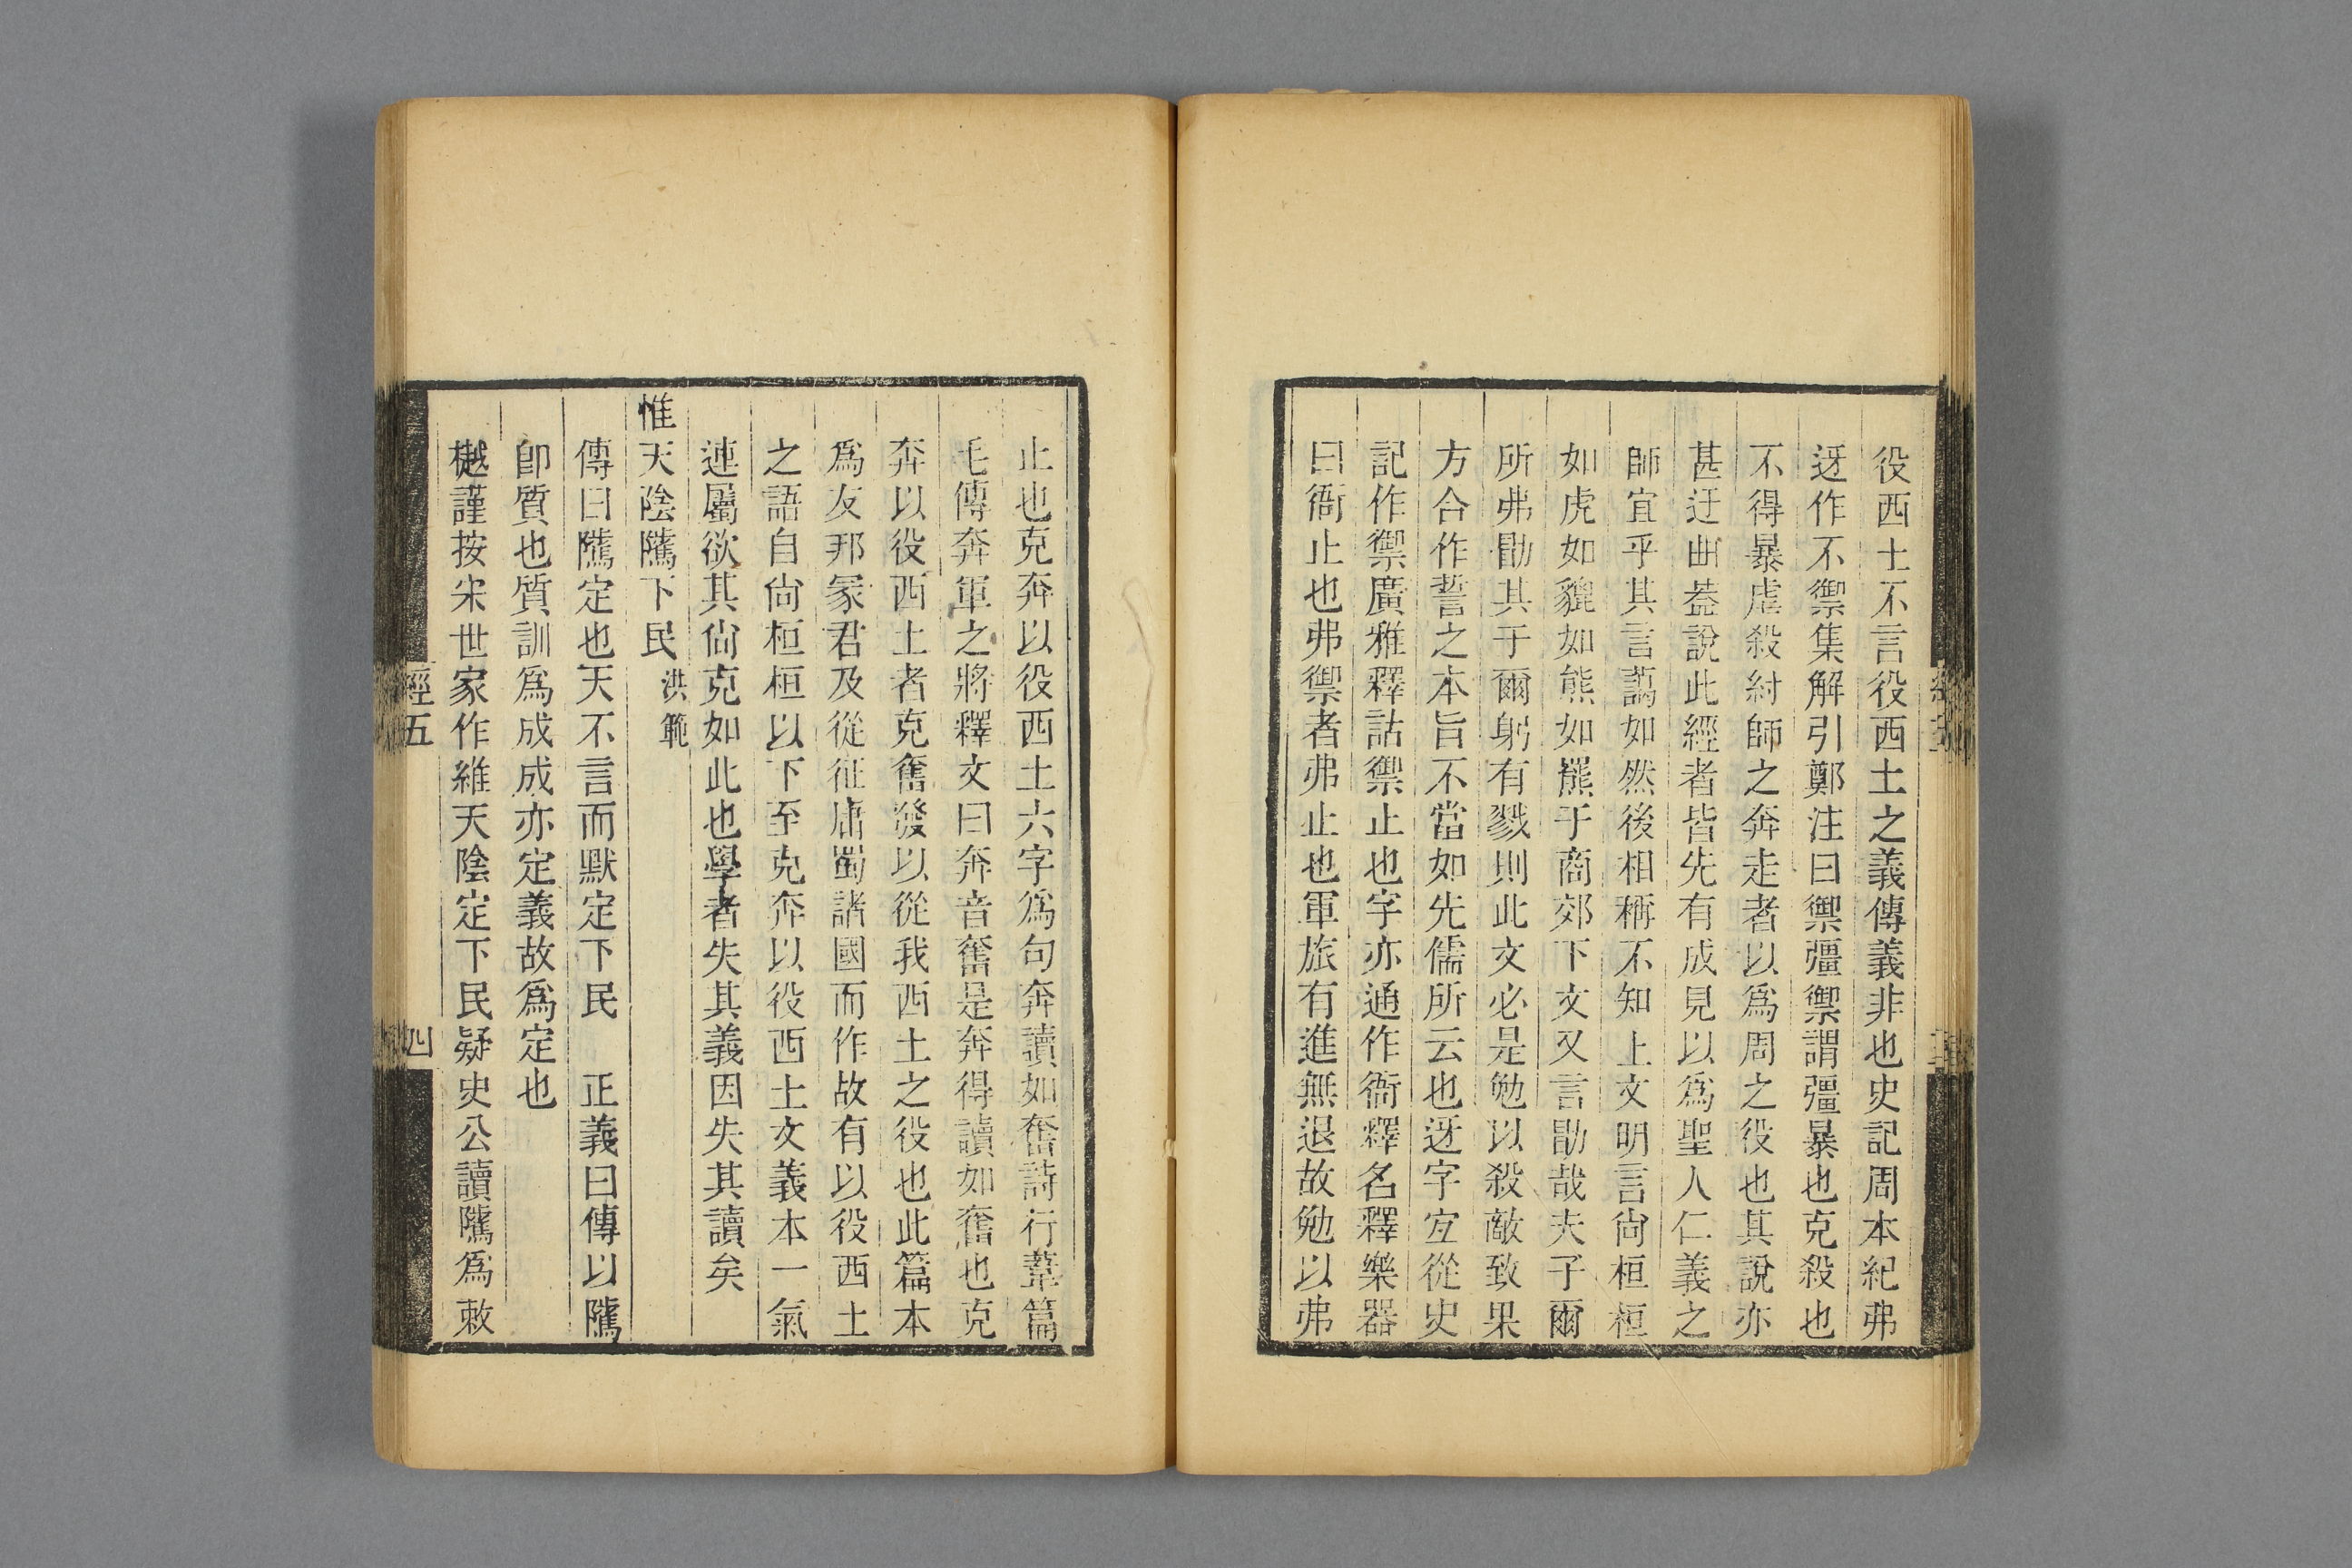 役西土不言役西土之義傳義非也史記周本紀弗
迓作不禦集解引鄭注曰禦彊禦謂彊暴也克殺也
不得暴虐殺紂師之奔走者以爲周之役也其說亦
甚迂曲葢說此經者皆先有成見以爲聖人仁義之
師宜乎其言藹如然後相稱不知上文明言尙桓桓
如虎如貔如熊如羆于商郊下文又言勖哉夫子爾
所弗勖其于爾躬有戮則此文必是勉以殺敵致果
方合作誓之本旨不當如先儒所云也迓字宐從史
記作禦廣雅釋詁禦止也字亦通作衙釋名釋樂器
曰衙止也弗禦者弗止也軍旅有進無退故勉以弗
止也克奔以役西土六字爲句奔讀如奮詩行葦篇
毛傳奔軍之將釋文曰奔音奮是奔得讀如奮也克
奔以役西土者克奮發以從我西土之役也此篇本
爲友邦冢君及從征庸蜀諸國而作故有以役西土
之語自尙桓桓以下至克奔以役西土文義本一氣
連屬欲其尙克如此也學者失其義因失其讀矣
惟天陰隲下民 洪範
傳曰隲定也天不言而默定下民 正義曰傳以隲
卽質也質訓爲成成亦定義故爲定也
樾謹按宋世家作維天陰定下民疑史公讀隲爲敕
經五
四